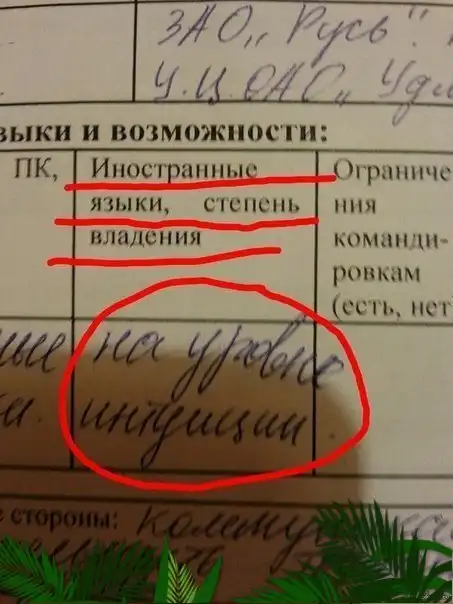 ЗАО „Русь".
У.Ц.ОАО „Удм
зыки и возможности:
ПК, Иностранные языки, степень владения Ограниче ния команди- ровкам (есть, нет
ные на уровне
и. интуиции.
е стороны: Коммуника